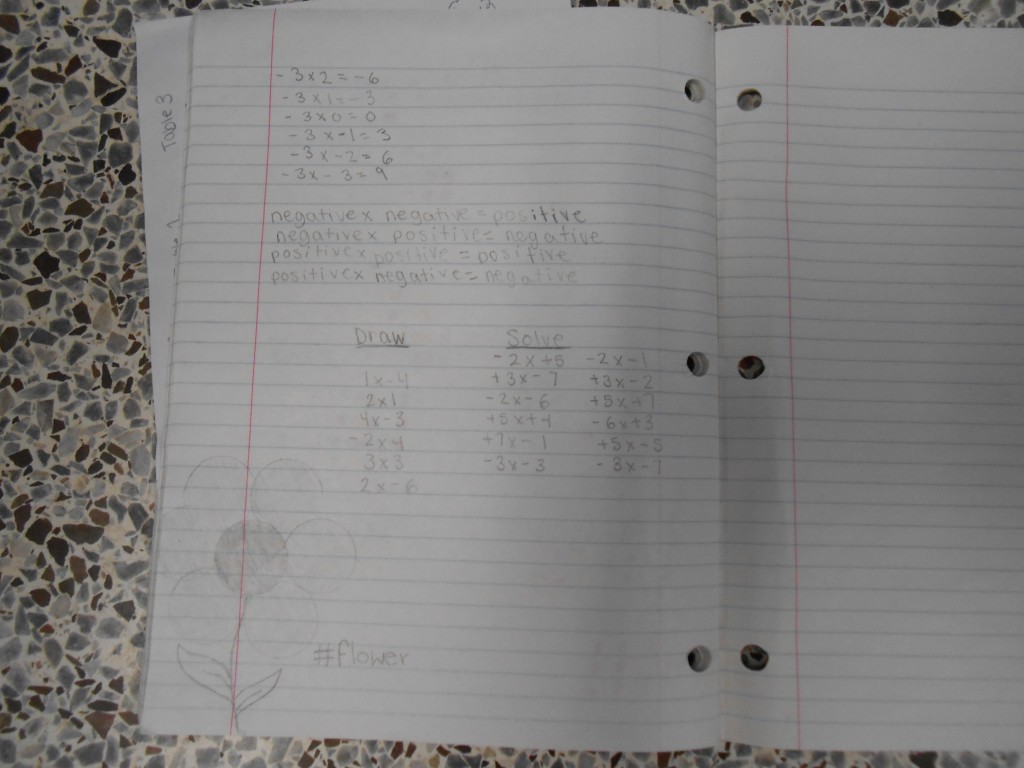 Table 3
-3x2=-6
-3x1=-3
-3x0=0
-3x-1=3
-3x-2=6
-3x-3=9
negative x negative = positive
negative x positive = negative
positive x positive = positive
positive x negative = negative
Draw Solve
-2x+5 -2x-1
1x-4 +3x-7 +3x-2
2x1 -2x-6 +5x+7
4x-3 +5x+4 -6x+3
-2x4 +7x-1 +5x-5
3x3 -3x-3 -3x-7
2x-6
#flower